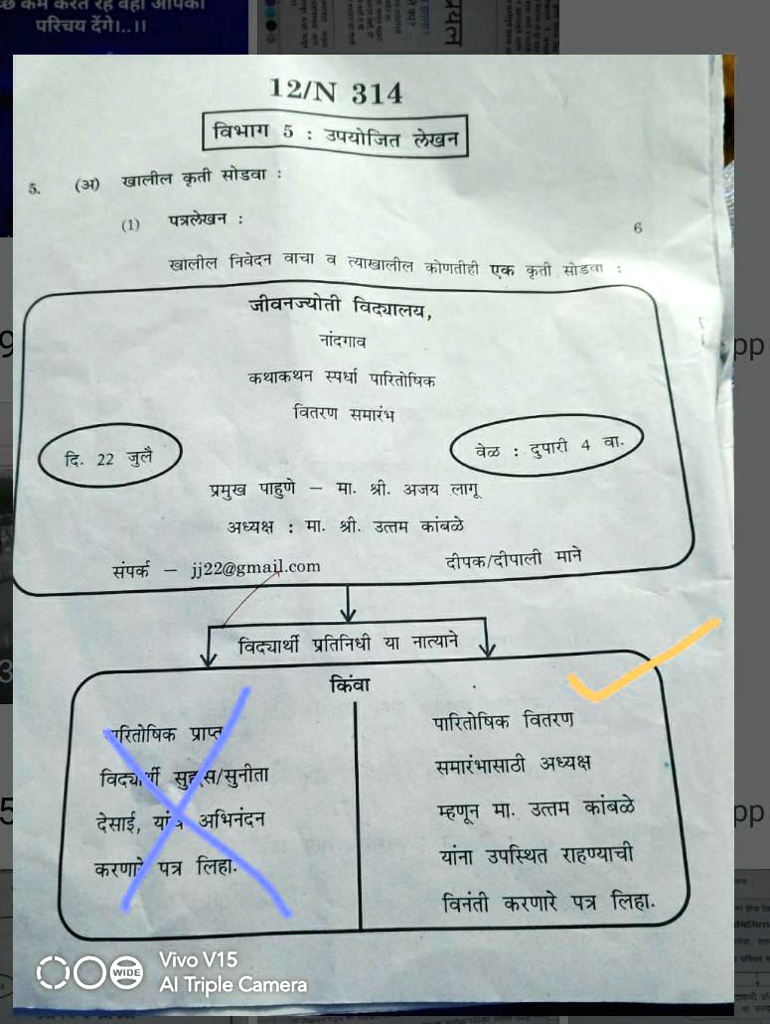 च्छे कर्म करते रहे वही आपका
परिचय देंगे।..॥
12/N 314
विभाग 5 : उपयोजित लेखन
5. (अ) खालील कृती सोडवा :
(1) पत्रलेखन : 6
खालील निवेदन वाचा व त्याखालील कोणतीही एक कृती सोडवा :
जीवनज्योती विद्यालय,
नांदगाव
कथाकथन स्पर्धा पारितोषिक
वितरण समारंभ
दि. 22 जुलै
वेळ : दुपारी 4 वा.
प्रमुख पाहुणे – मा. श्री. अजय लागू
अध्यक्ष : मा. श्री. उत्तम कांबळे
संपर्क – jj22@gmail.com दीपक/दीपाली माने
विद्यार्थी प्रतिनिधी या नात्याने
किंवा
पारितोषिक प्राप्त
विद्यार्थी सुहास/सुनीता
देसाई, यांचे अभिनंदन
करणारे पत्र लिहा.
पारितोषिक वितरण
समारंभासाठी अध्यक्ष
म्हणून मा. उत्तम कांबळे
यांना उपस्थित राहण्याची
विनंती करणारे पत्र लिहा.
pp
pp
WIDE
Vivo V15
AI Triple Camera